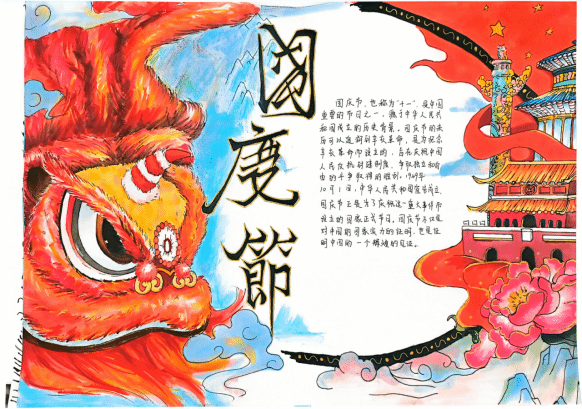 國
度
節
国庆节,也称为“十一”,是中国
重要的节日之一,源于中华人民共
和国成立的历史背景。国庆节的来
历可以追溯到辛亥革命,是为纪念
辛亥革命而设立的,旨在庆祝中国
人民反抗封建制度、争取独立和自
由的斗争取得的胜利。1949年
10月1日,中华人民共和国宣告成立,
国庆节正是为了庆祝这一重大事件而
设立的国家正式节日。国庆节不仅是
对中国的国家实力的证明,也是证
明中国的一个辉煌的见证。